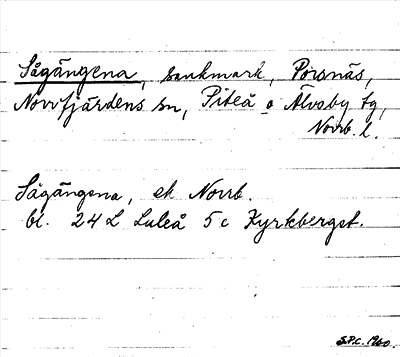 Sågängena, sankmark, Porsnäs,
Norrfjärdens sn, Piteå o Älvsby tg,
Norrb. l.
Sågängena, ek Norrb.
bl. 24 L Luleå 5 c Kyrkberget.
S.P.C. 1960.